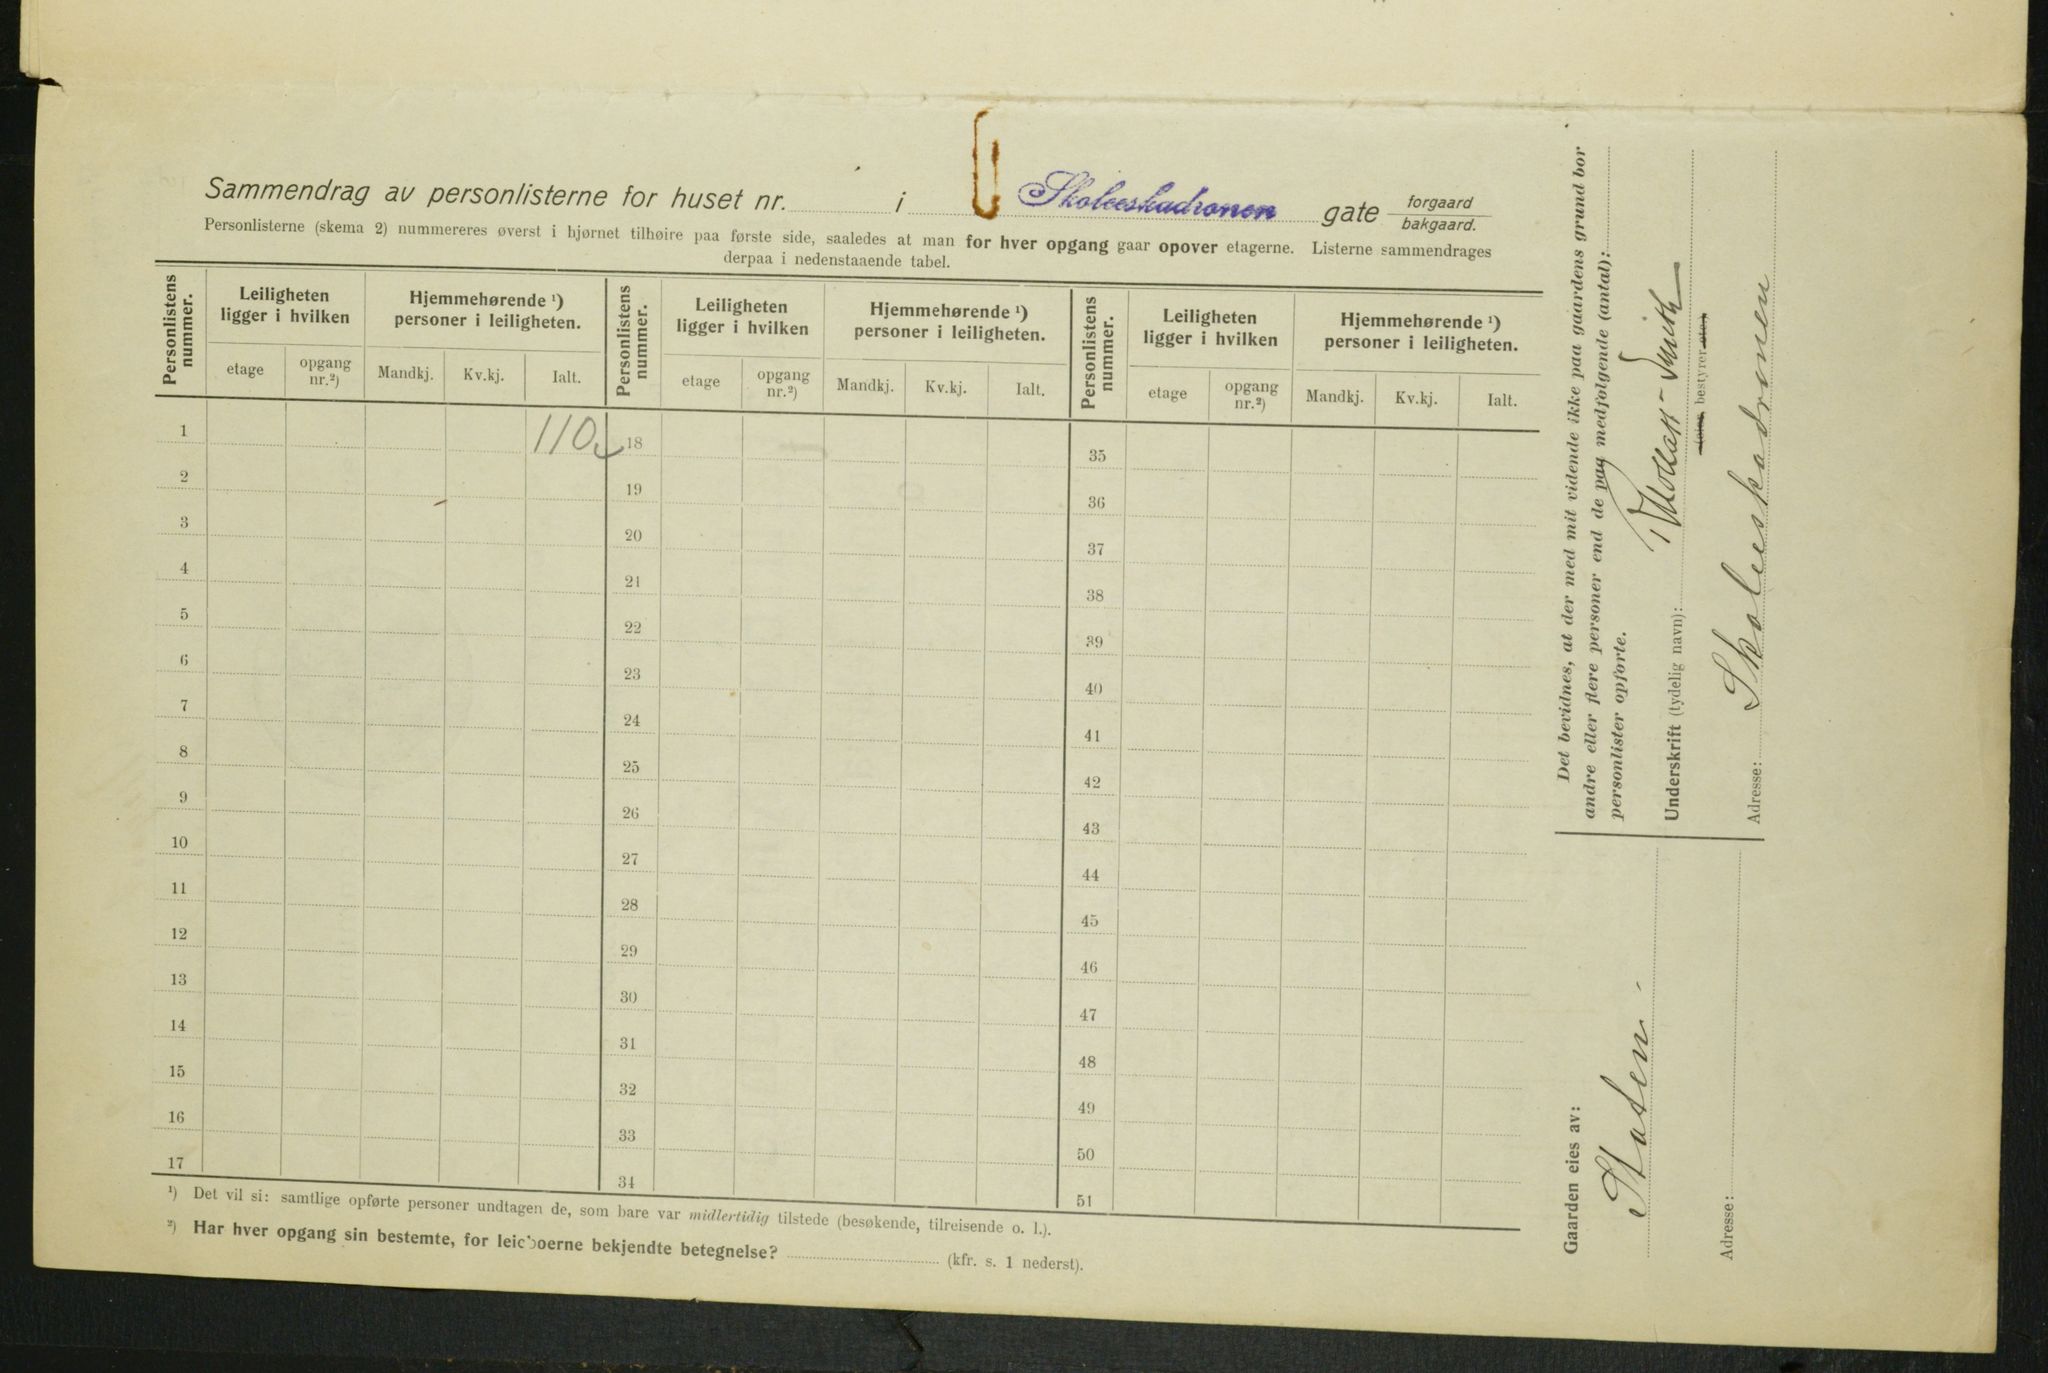 Sammendrag av personlisterne for huset nr. i Skoleeskadronen gate forgaard
bakgaard.
Personlisterne (skema 2) nummereres øverst i hjørnet tilhøire paa første side, saaledes at man for hver opgang gaar opover etagerne. Listerne sammendrages
derpaa i nedenstaaende tabel.
Personlistens nummer. Leiligheten ligger i hvilken Hjemmehørende ¹) personer i leiligheten. Personlistens nummer. Leiligheten ligger i hvilken Hjemmehørende ¹) personer i leiligheten. Personlistens nummer. Leiligheten ligger i hvilken Hjemmehørende ¹) personer i leiligheten.
etage opgang nr.²) Mandkj. Kv.kj. Ialt. etage opgang nr.²) Mandkj. Kv.kj. Ialt. etage opgang nr.²) Mandkj. Kv.kj. Ialt.
1 110 18 35
2 19 36
3 20 37
4 21 38
5 22 39
6 23 40
7 24 41
8 25 42
9 26 43
10 27 44
11 28 45
12 29 46
13 30 47
14 31 48
15 32 49
16 33 50
17 34 51
¹) Det vil si: samtlige opførte personer undtagen de, som bare var midlertidig tilstede (besøkende, tilreisende o. l.).
²) Har hver opgang sin bestemte, for leieboerne bekjendte betegnelse? (kfr. s. 1 nederst).
Det bevidnes, at der med mit vidende ikke paa gaardens grund bor
andre eller flere personer end de paa medfølgende (antal):
personlister opførte.
Underskrift (tydelig navn):
(eier, bestyrer etc.)
Adresse: Skoleeskadronen
Gaarden eies av:
Staten.
Adresse: